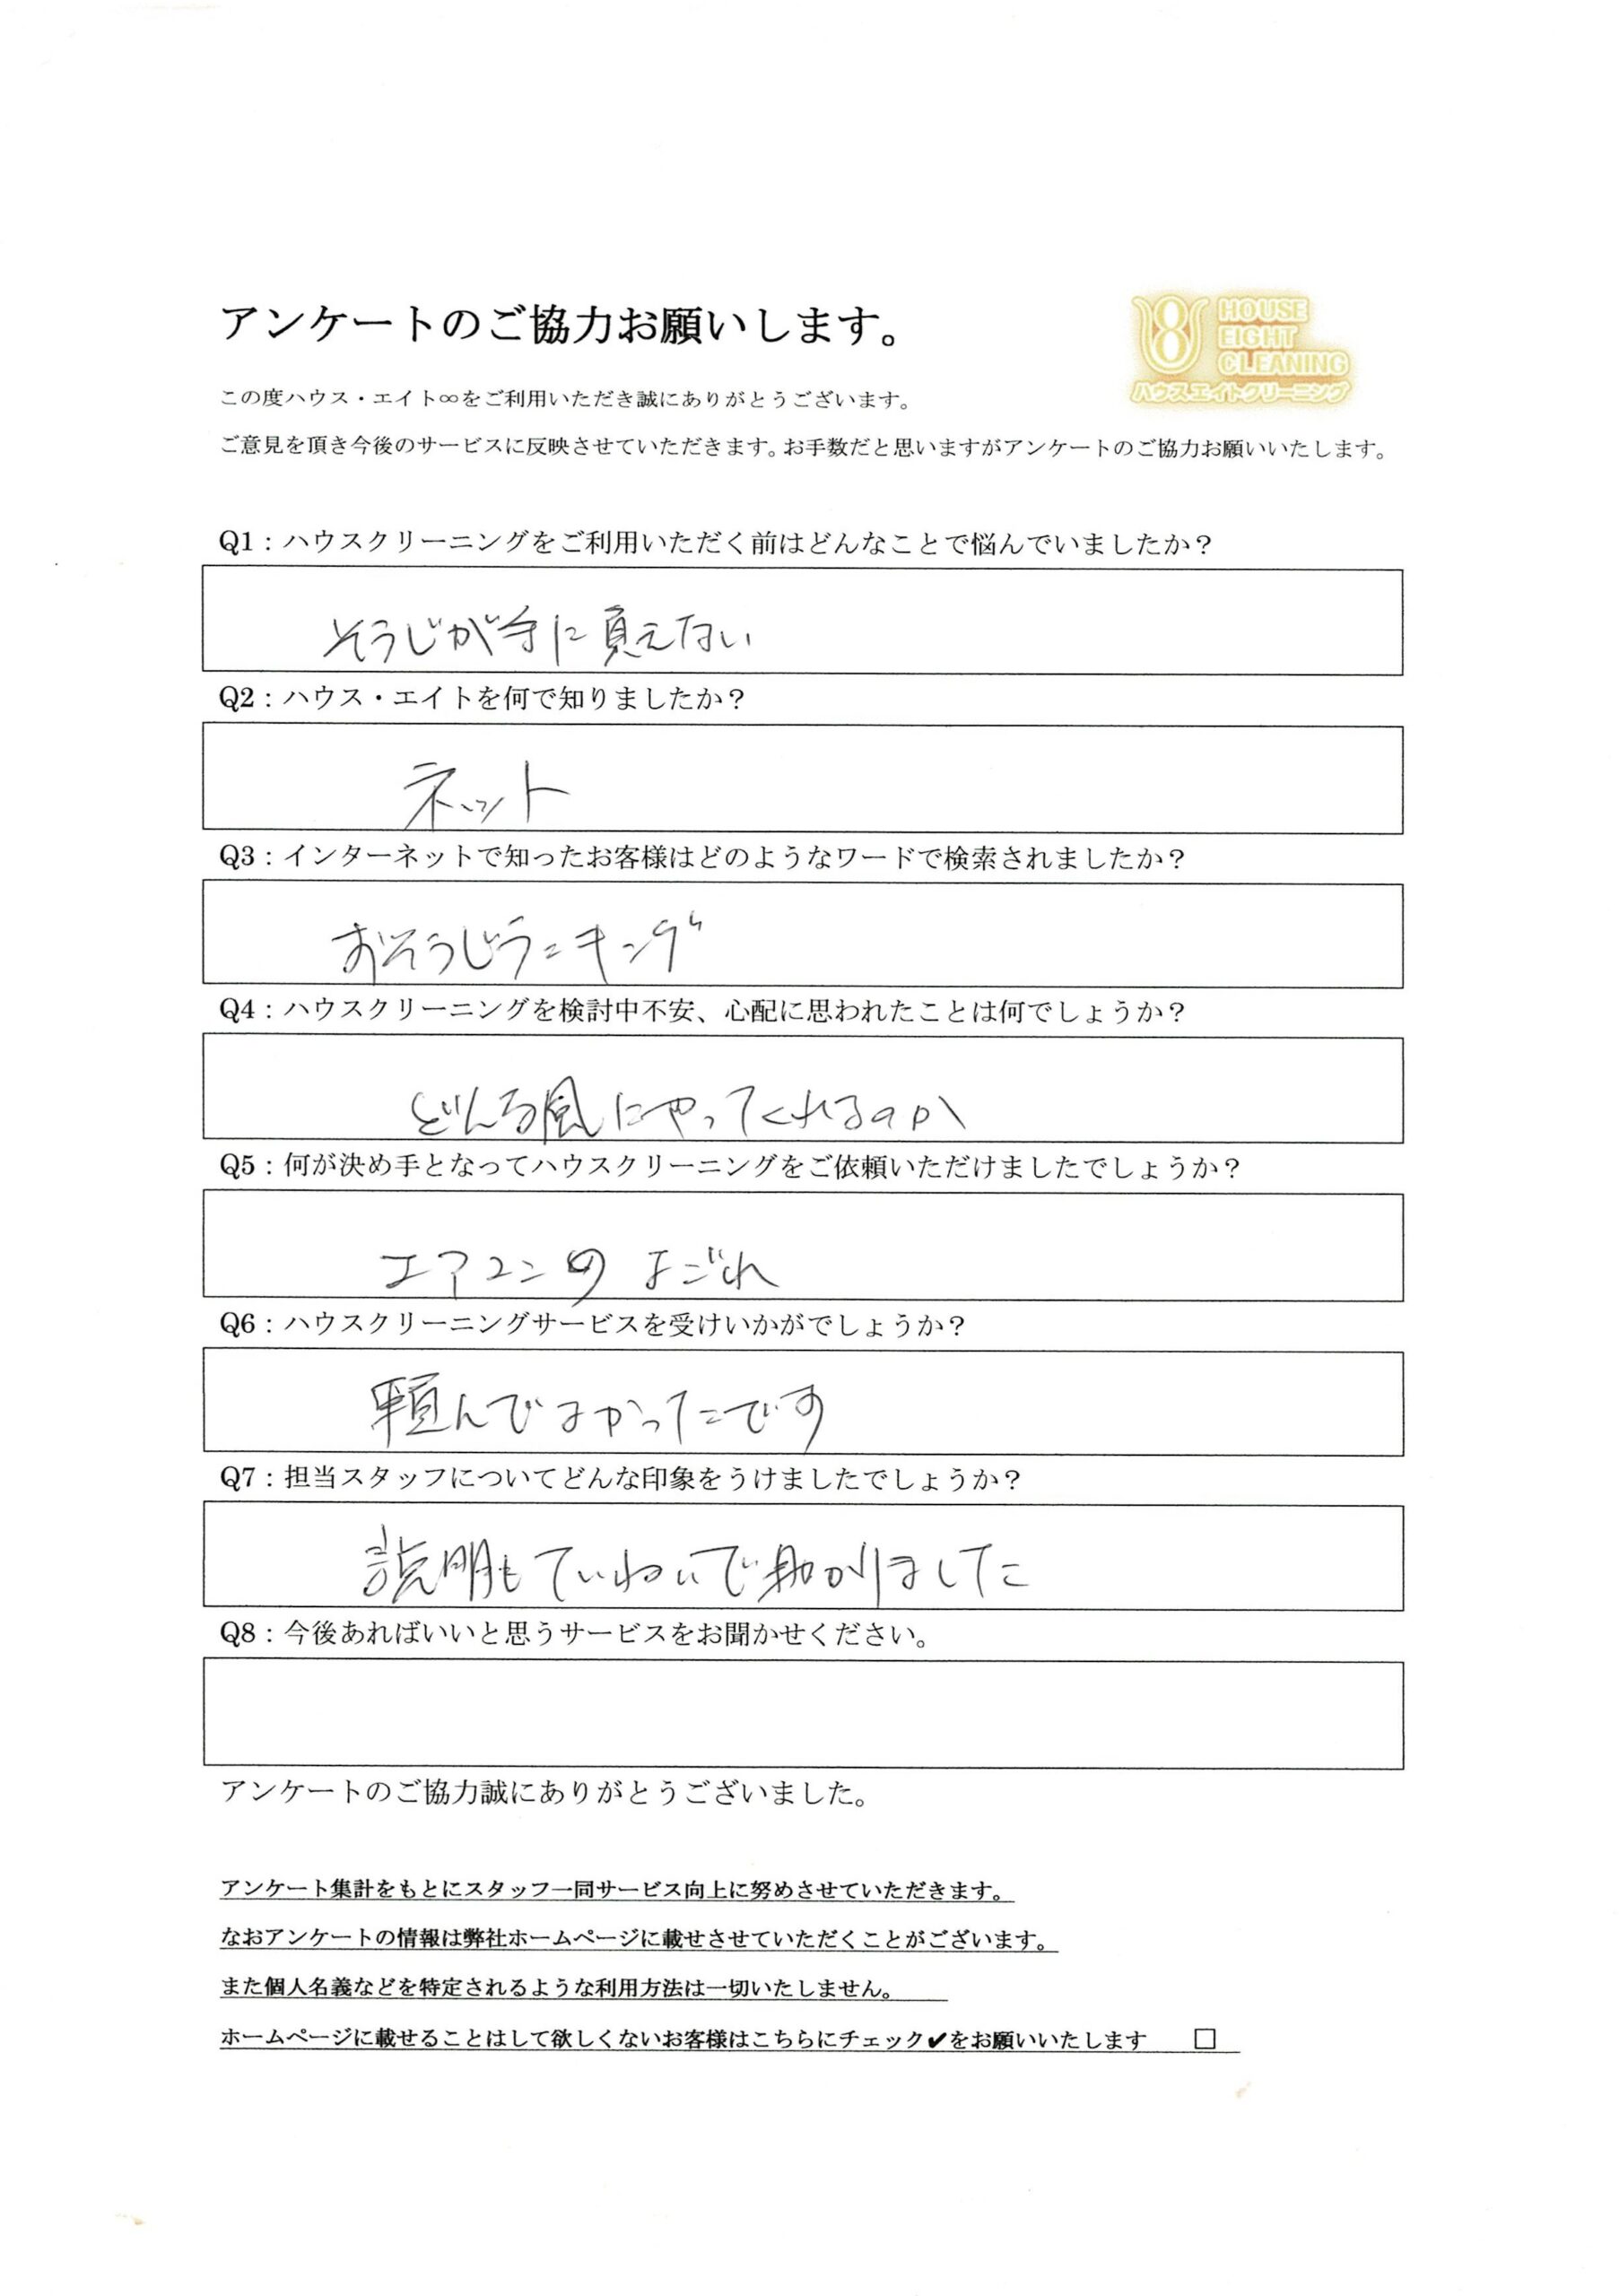 アンケートのご協力お願いします。
HOUSE
EIGHT
CLEANING
ハウスエイトクリーニング
この度ハウス・エイト∞をご利用いただき誠にありがとうございます。
ご意見を頂き今後のサービスに反映させていただきます。お手数だと思いますがアンケートのご協力お願いいたします。
Q1：ハウスクリーニングをご利用いただく前はどんなことで悩んでいましたか？
そうじが手に負えない
Q2：ハウス・エイトを何で知りましたか？
ネット
Q3：インターネットで知ったお客様はどのようなワードで検索されましたか？
おそうじランキング
Q4：ハウスクリーニングを検討中不安、心配に思われたことは何でしょうか？
どんな風にやってくれるのか
Q5：何が決め手となってハウスクリーニングをご依頼いただけましたでしょうか？
エアコンのよごれ
Q6：ハウスクリーニングサービスを受けいかがでしょうか？
頼んでよかったです
Q7：担当スタッフについてどんな印象をうけましたでしょうか？
説明もていねいで助かりました
Q8：今後あればいいと思うサービスをお聞かせください。
アンケートのご協力誠にありがとうございました。
アンケート集計をもとにスタッフ一同サービス向上に努めさせていただきます。
なおアンケートの情報は弊社ホームページに載せさせていただくことがございます。
また個人名義などを特定されるような利用方法は一切いたしません。
ホームページに載せることはして欲しくないお客様はこちらにチェック✔をお願いいたします　□